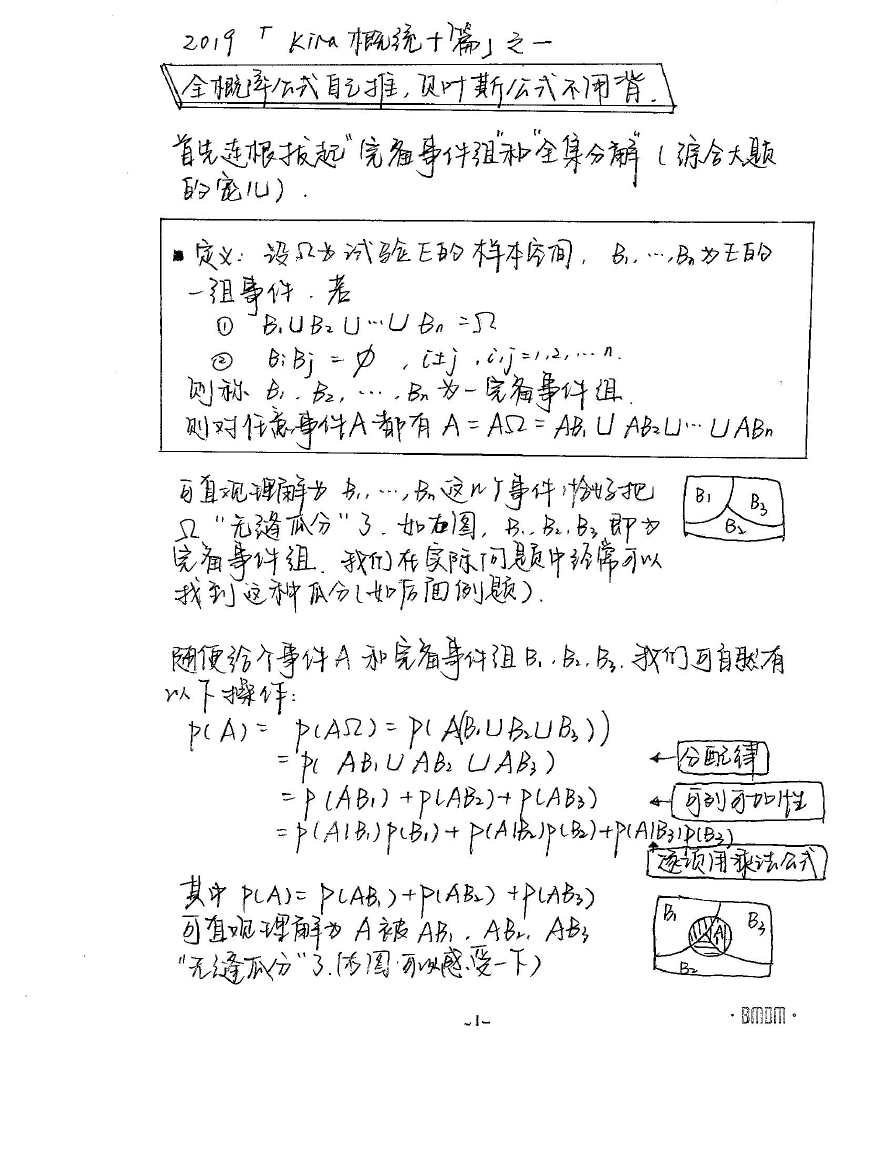 2019「Kira概统十篇」之一
全概率公式自己推,贝叶斯公式不用背.
首先连根拔起"完备事件组"和"全集分解"(综合大题
的宠儿).
▪ 定义: 设Ω为试验E的样本空间, B₁, …, Bₙ为E的
一组事件. 若
① B₁∪B₂∪…∪Bₙ=Ω
② BᵢBⱼ = ∅ , i≠j , i,j=1,2,…n.
则称 B₁, B₂, …, Bₙ 为一完备事件组.
则对任意事件A都有 A=AΩ=AB₁∪AB₂∪…∪ABₙ
可直观理解为 B₁, …, Bₙ这n个事件恰好把
Ω "无缝瓜分"了. 如右图, B₁, B₂, B₃ 即为
完备事件组. 我们在实际问题中经常可以
找到这种瓜分(如后面例题).
B₁ B₃
B₂
随便给个事件A和完备事件组B₁, B₂, B₃. 我们可自然有
以下操作:
P(A) = P(AΩ) = P(A(B₁∪B₂∪B₃))
= P(AB₁∪AB₂∪AB₃) ← 分配律
= P(AB₁)+P(AB₂)+P(AB₃) ← 可列可加性
= P(A|B₁)P(B₁)+P(A|B₂)P(B₂)+P(A|B₃)P(B₃)
逐项用乘法公式
其中 P(A)=P(AB₁)+P(AB₂)+P(AB₃)
可直观理解为 A被 AB₁, AB₂, AB₃
"无缝瓜分"了.(右图可以感受一下)
B₁ A B₃
B₂
-1-
·BMDM·